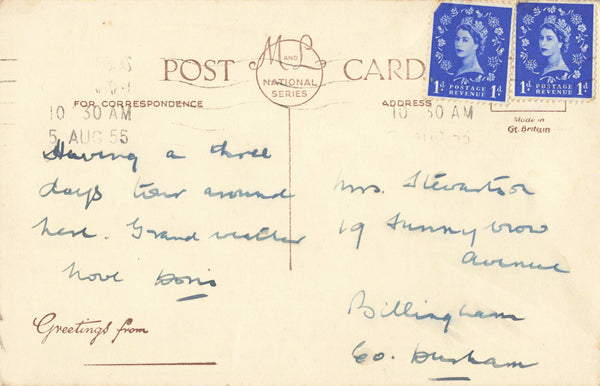 POST CARD
M AND L
NATIONAL
SERIES
FOR CORRESPONDENCE
ADDRESS
10 30 AM
5 AUG 55
10 30 AM
AUG 55
1d POSTAGE 1d
REVENUE
1d POSTAGE 1d
REVENUE
Made in
Gt. Britain
Having a three
days tour around
here. Grand weather
love Doris
Greetings from
Mrs. Stewartson
19 Sunnybrow
avenue
Billingham
Co. Durham